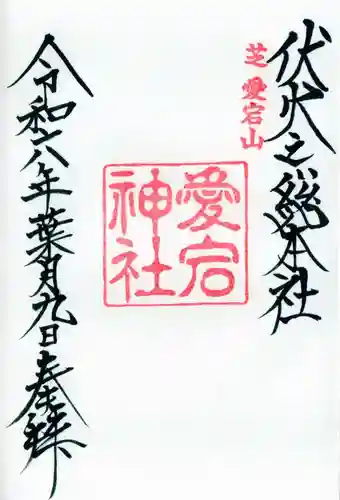 伏火之総本社
芝 愛宕山
愛宕
神社
令和六年葉月九日奉拝